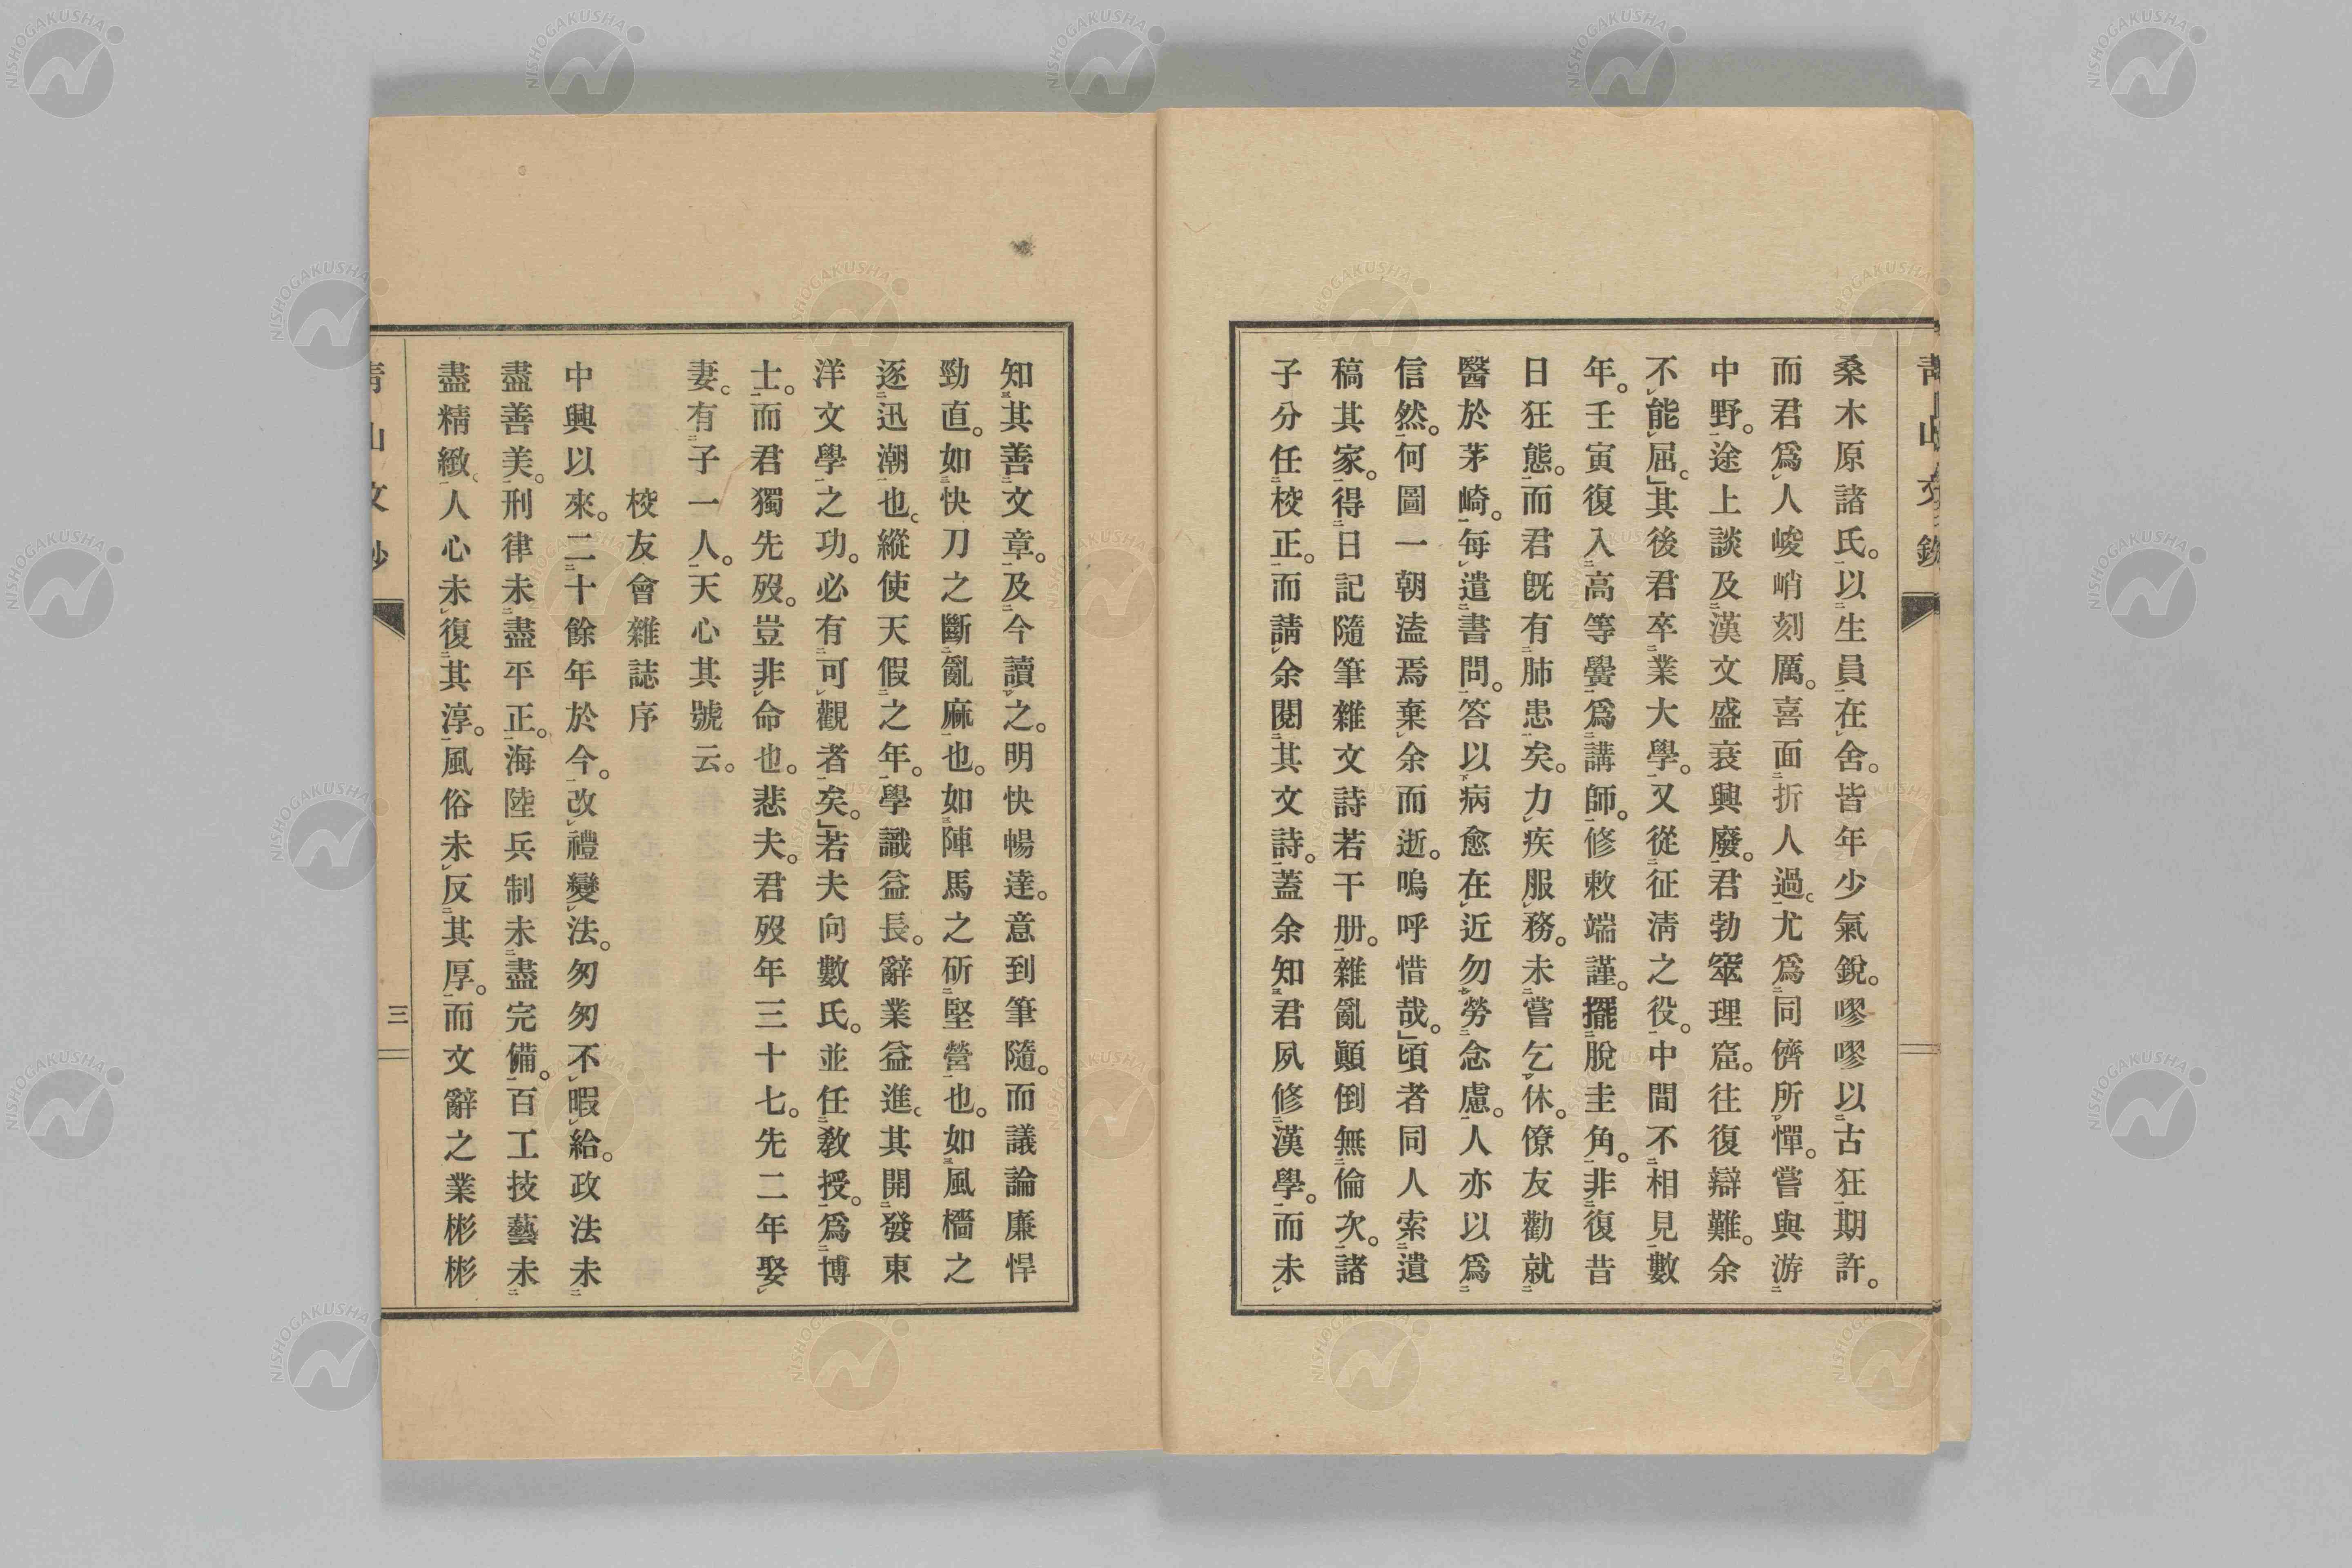 桑木原諸氏。以生員在舍。皆年少氣銳。嘐嘐以古狂期許。
而君爲人峻峭刻厲。喜面折人過。尤爲同儕所憚。嘗與游
中野。途上談及漢文盛衰興廢。君勃窣理窟。往復辯難。余
不能屈。」其後君卒業大學。又從征淸之役。中間不相見數
年。壬寅復入高等黌爲講師。修敕端謹。擺脫圭角。非復昔
日狂態。而君旣有肺患矣。力疾服務。未嘗乞休。僚友勸就
醫於茅崎。每遣書問。答以病愈在近勿勞念慮。人亦以爲
信然。何圖一朝溘焉棄余而逝。嗚呼惜哉。」頃者同人索遺
稿其家。得日記隨筆雜文詩若干册。雜亂顚倒無倫次。諸
子分任校正。而請余閱其文詩。蓋余知君夙修漢學。而未
知其善文章。及今讀之。明快暢達。意到筆隨。而議論廉悍
勁直。如快刀之斷亂麻也。如陣馬之斫堅營也。如風檣之
逐迅潮也。縱使天假之年。學識益長。辭業益進。其開發東
洋文學之功。必有可觀者矣。」若夫向數氏。並任敎授。爲博
士。而君獨先歿。豈非命也。悲夫。君歿年三十七。先二年娶
妻。有子一人。天心其號云。
校友會雜誌序
中興以來。二十餘年於今。改禮變法。匆匆不暇給。政法未
盡善美。刑律未盡平正。海陸兵制未盡完備。百工技藝未
盡精緻。人心未復其淳。風俗未反其厚。而文辭之業彬彬
靑山文鈔
三
NISHOGAKUSHA